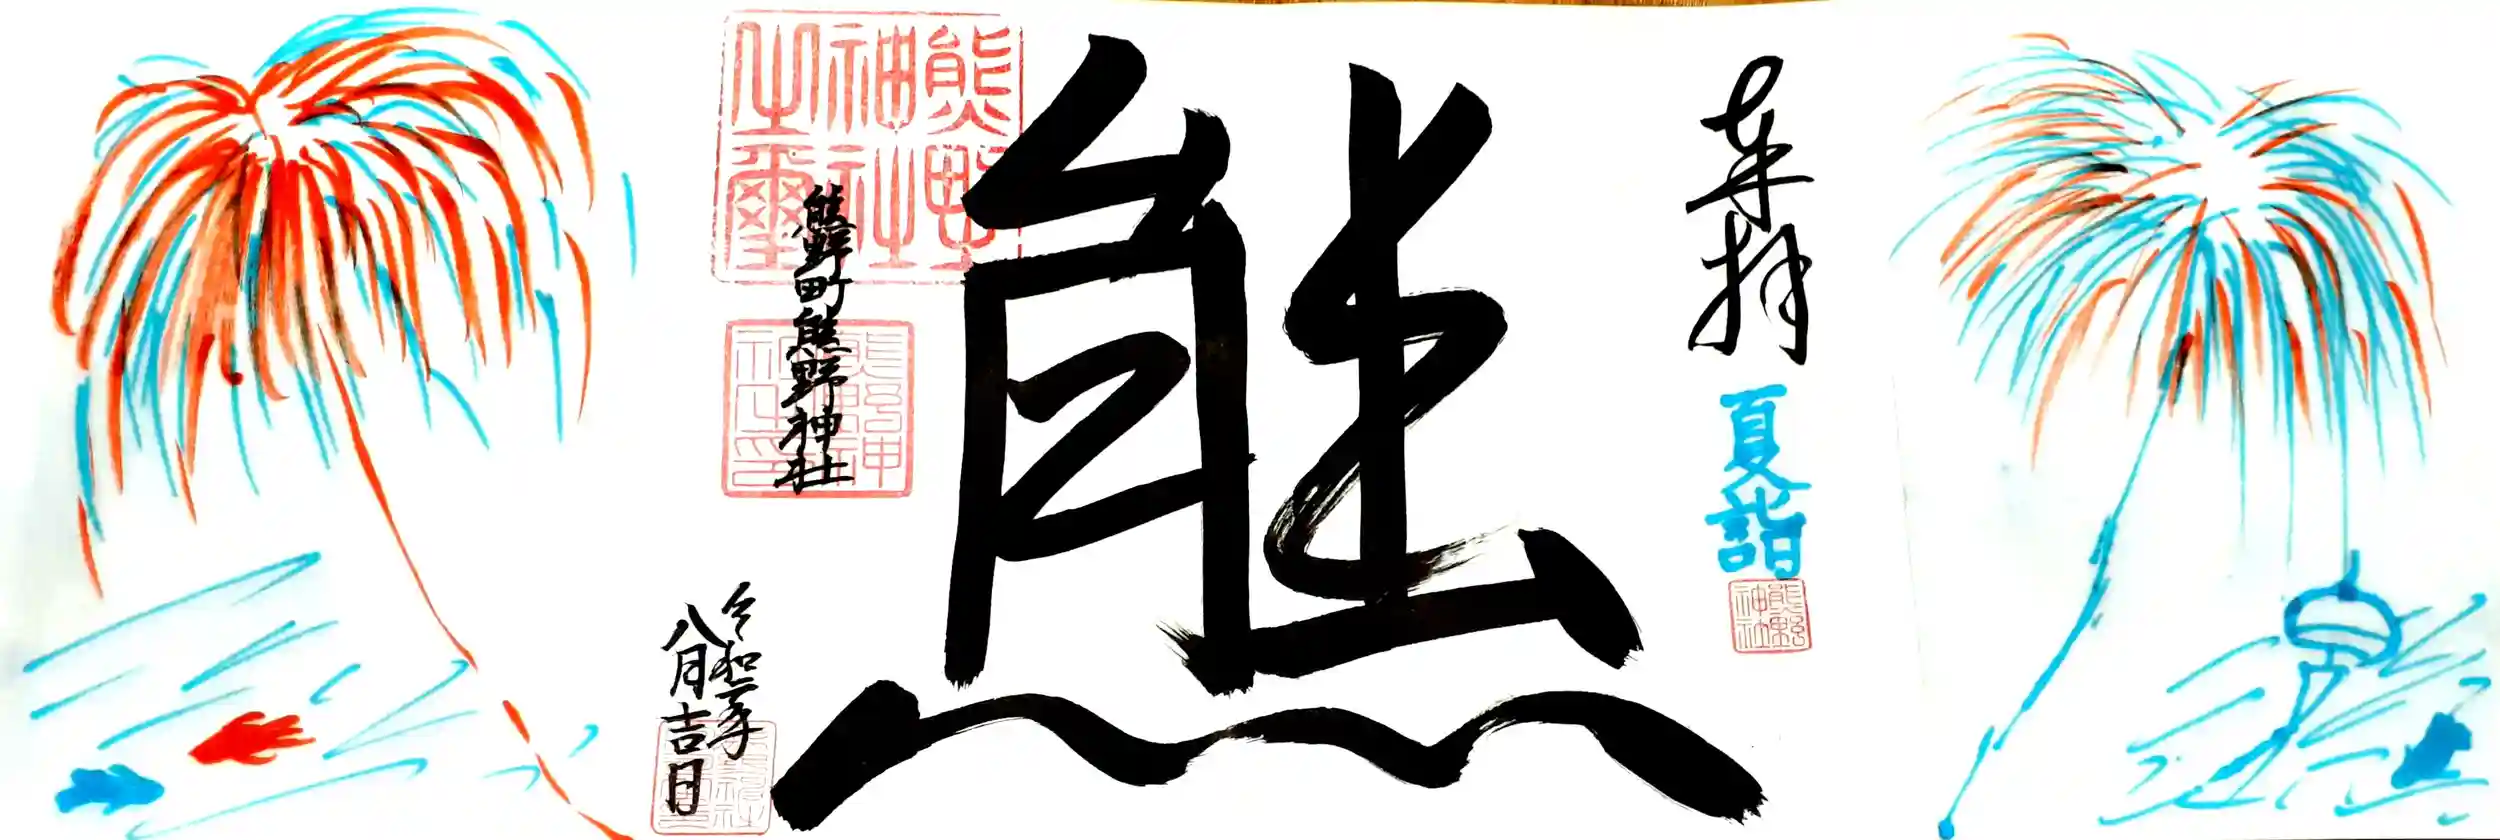 奉拝
夏詣
熊野
神社
熊
熊野
神社
之璽
熊野町熊野神社
熊野神
社印
令和二年
八月吉日